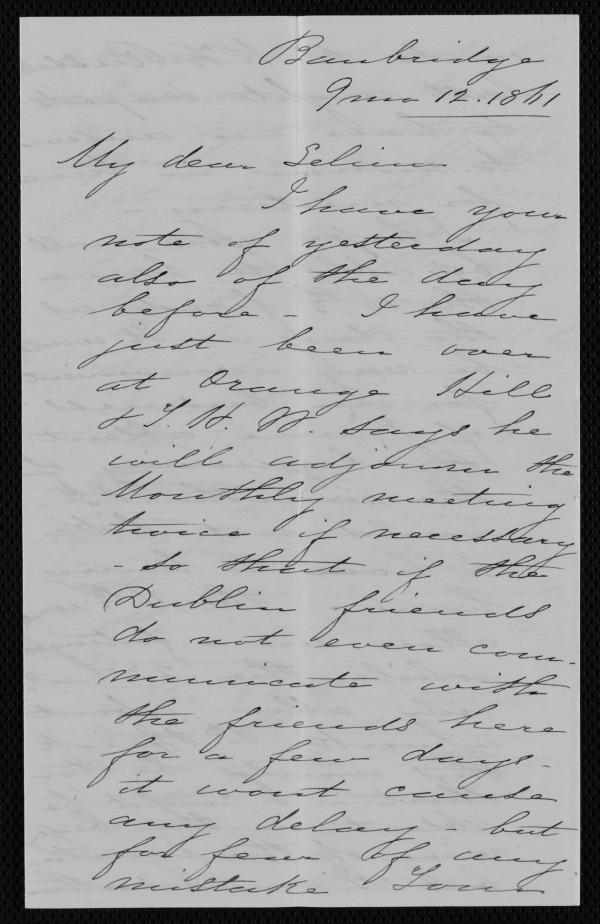 Banbridge
9 mo 12. 1861
My dear Selina
I have your
note of yesterday
also of the day
before - I have
just been over
at Orange Hill
& T. H. W. says he
will adjourn the
Monthly meeting
twice if necessary
- so that if the
Dublin friends
do not even com-
municate with
the friends here
for a few days -
it wont cause
any delay - but
for fear of any
mistake Your